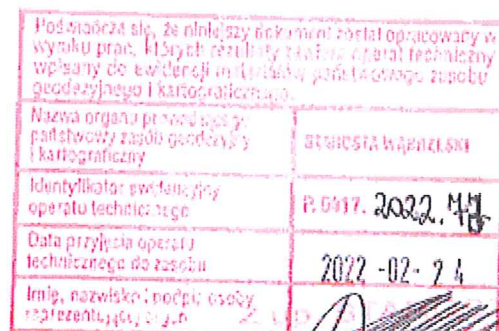 Poświadcza się, że niniejszy dokument został opracowany w
wyniku prac, których rezultaty zawiera operat techniczny
wpisany do ewidencji materiałów państwowego zasobu
geodezyjnego i kartograficznego.
Nazwa organu prowadzącego
państwowy zasób geodezyjny
i kartograficzny
STAROSTA WĄBRZESKI
Identyfikator ewidencyjny
operatu technicznego
P.0417. 2022.
Data przyjęcia operatu
technicznego do zasobu
2022 -02- 24
Imię, nazwisko i podpis osoby
reprezentującej organ